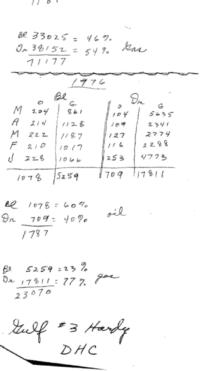 Bl 33025 = 46%
On 38152 = 54% Gas
71177
1976
Bl On
O G O G
M 204 861 104 5635
A 214 1128 109 2341
M 222 1187 127 2774
F 210 1017 116 2288
J 228 1066 253 4773
1078 5259 709 17811
Bl 1078 = 60%
On 709 = 40% oil
1787
Bl 5259 = 23%
On 17811 = 77% gas
23070
Gulf #3 Hardy
DHC